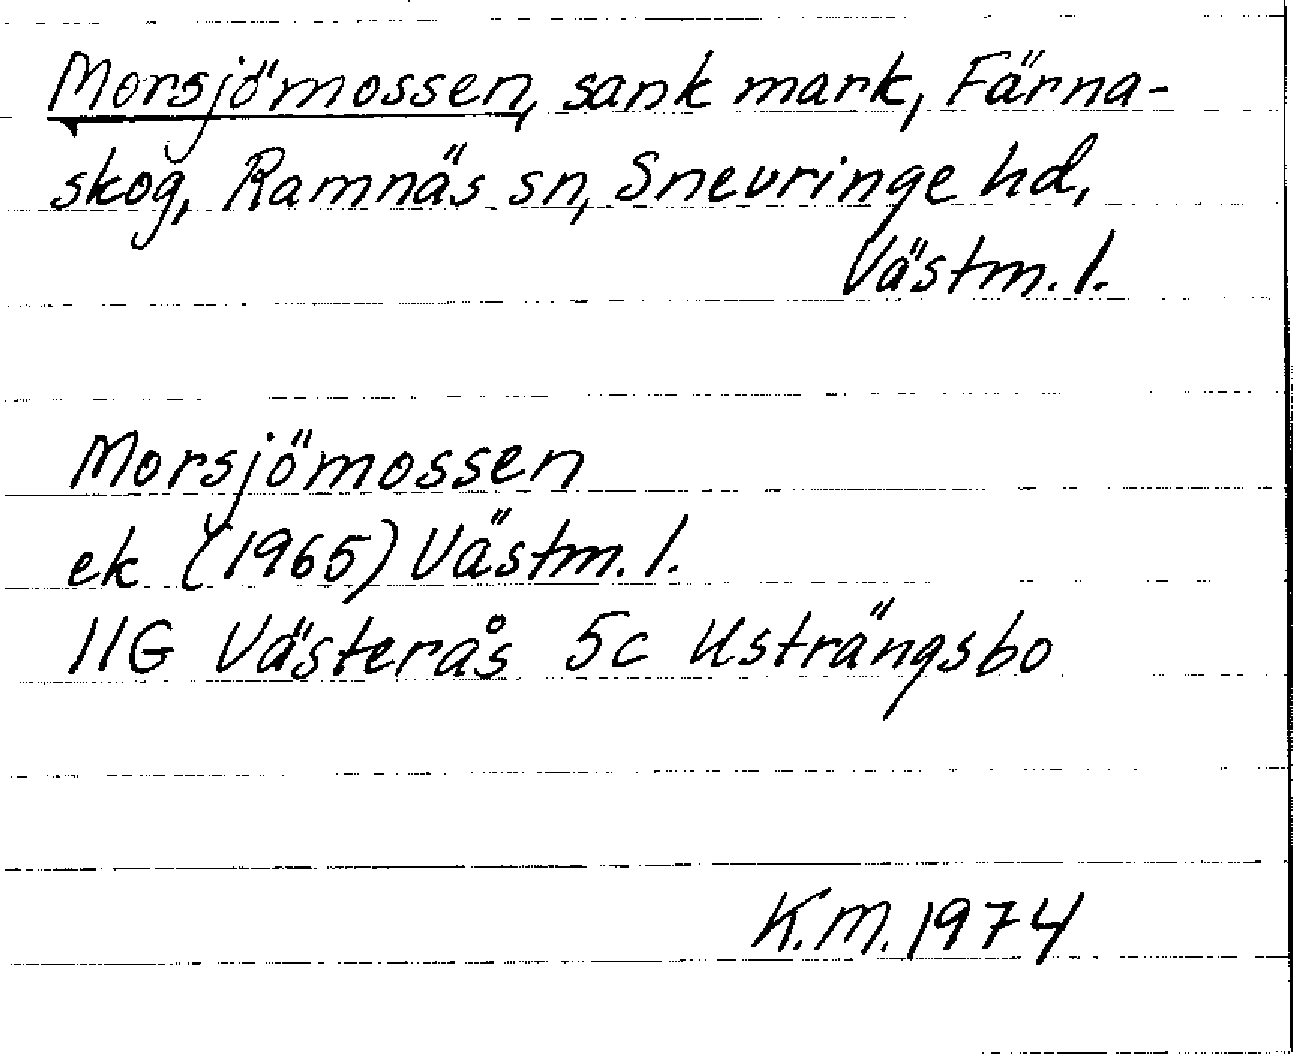 Morsjömossen, sank mark, Färna-
skog, Ramnäs sn, Snevringe hd,
Västm. l.
Morsjömossen
ek (1965) Västm. l.
11G Västerås 5c Usträngsbo
K.M. 1974